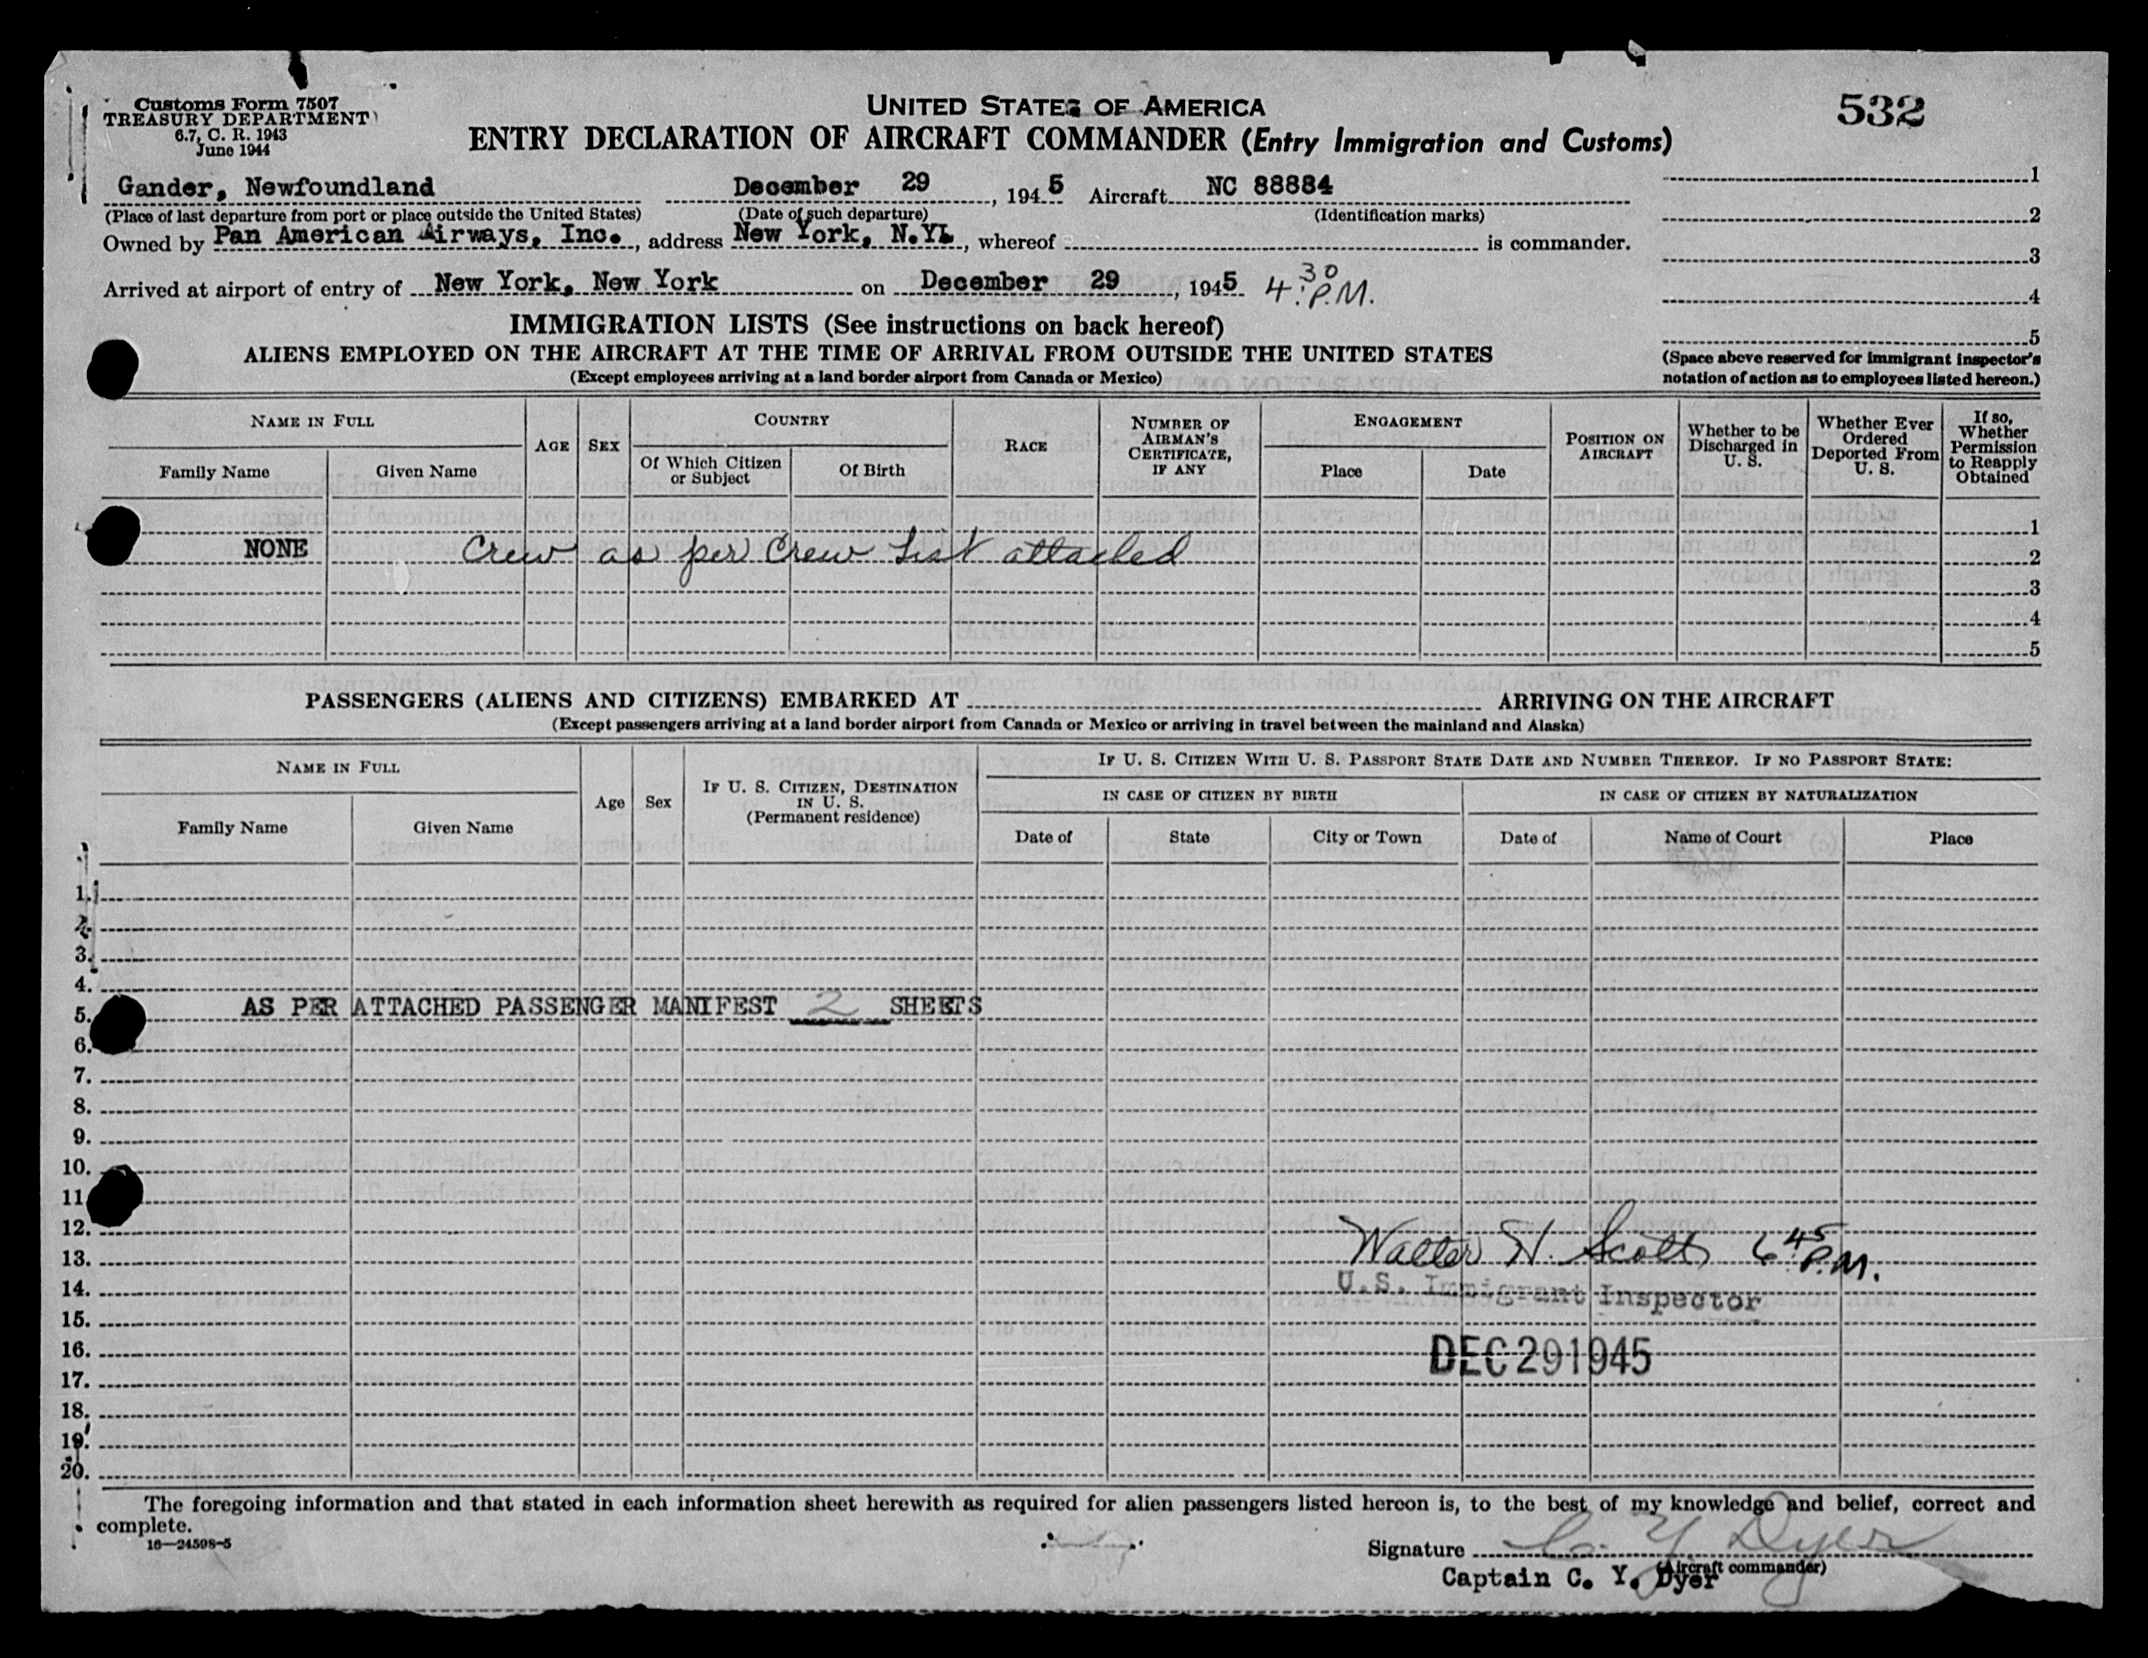 Customs Form 7507
TREASURY DEPARTMENT
6.7, C. R. 1943
June 1944
UNITED STATES OF AMERICA
532
ENTRY DECLARATION OF AIRCRAFT COMMANDER (Entry Immigration and Customs)
Gander, Newfoundland December 29, 1945 Aircraft NC 88884
(Place of last departure from port or place outside the United States) (Date of such departure) (Identification marks)
Owned by Pan American Airways, Inc., address New York, N.Y., whereof is commander.
Arrived at airport of entry of New York, New York on December 29, 1945 4:30 P.M.
1
2
3
4
5
(Space above reserved for immigrant inspector's
notation of action as to employees listed hereon.)
IMMIGRATION LISTS (See instructions on back hereof)
ALIENS EMPLOYED ON THE AIRCRAFT AT THE TIME OF ARRIVAL FROM OUTSIDE THE UNITED STATES
(Except employees arriving at a land border airport from Canada or Mexico)
NAME IN FULL
Family Name
Given Name
AGE
SEX
COUNTRY
Of Which Citizen
or Subject
Of Birth
RACE
NUMBER OF
AIRMAN'S
CERTIFICATE,
IF ANY
ENGAGEMENT
Place
Date
POSITION ON
AIRCRAFT
Whether to be
Discharged in
U. S.
Whether Ever
Ordered
Deported From
U. S.
If so,
Whether
Permission
to Reapply
Obtained
1
NONE Crew as per Crew List attached 2
3
4
5
PASSENGERS (ALIENS AND CITIZENS) EMBARKED AT ARRIVING ON THE AIRCRAFT
(Except passengers arriving at a land border airport from Canada or Mexico or arriving in travel between the mainland and Alaska)
NAME IN FULL
Family Name
Given Name
Age
Sex
IF U. S. CITIZEN, DESTINATION
IN U. S.
(Permanent residence)
IF U. S. CITIZEN WITH U. S. PASSPORT STATE DATE AND NUMBER THEREOF. IF NO PASSPORT STATE:
IN CASE OF CITIZEN BY BIRTH
IN CASE OF CITIZEN BY NATURALIZATION
Date of
State
City or Town
Date of
Name of Court
Place
1.
2.
3.
4.
5. AS PER ATTACHED PASSENGER MANIFEST 2 SHEETS
6.
7.
8.
9.
10.
11
12.
13. Walter H. Scott 6:45 P.M.
14. U.S. Immigrant Inspector
15.
16. DEC 29 1945
17.
18.
19.
20.
The foregoing information and that stated in each information sheet herewith as required for alien passengers listed hereon is, to the best of my knowledge and belief, correct and
complete.
16—24598-5
Signature C. Y. Dyer
(Aircraft commander)
Captain C. Y. Dyer